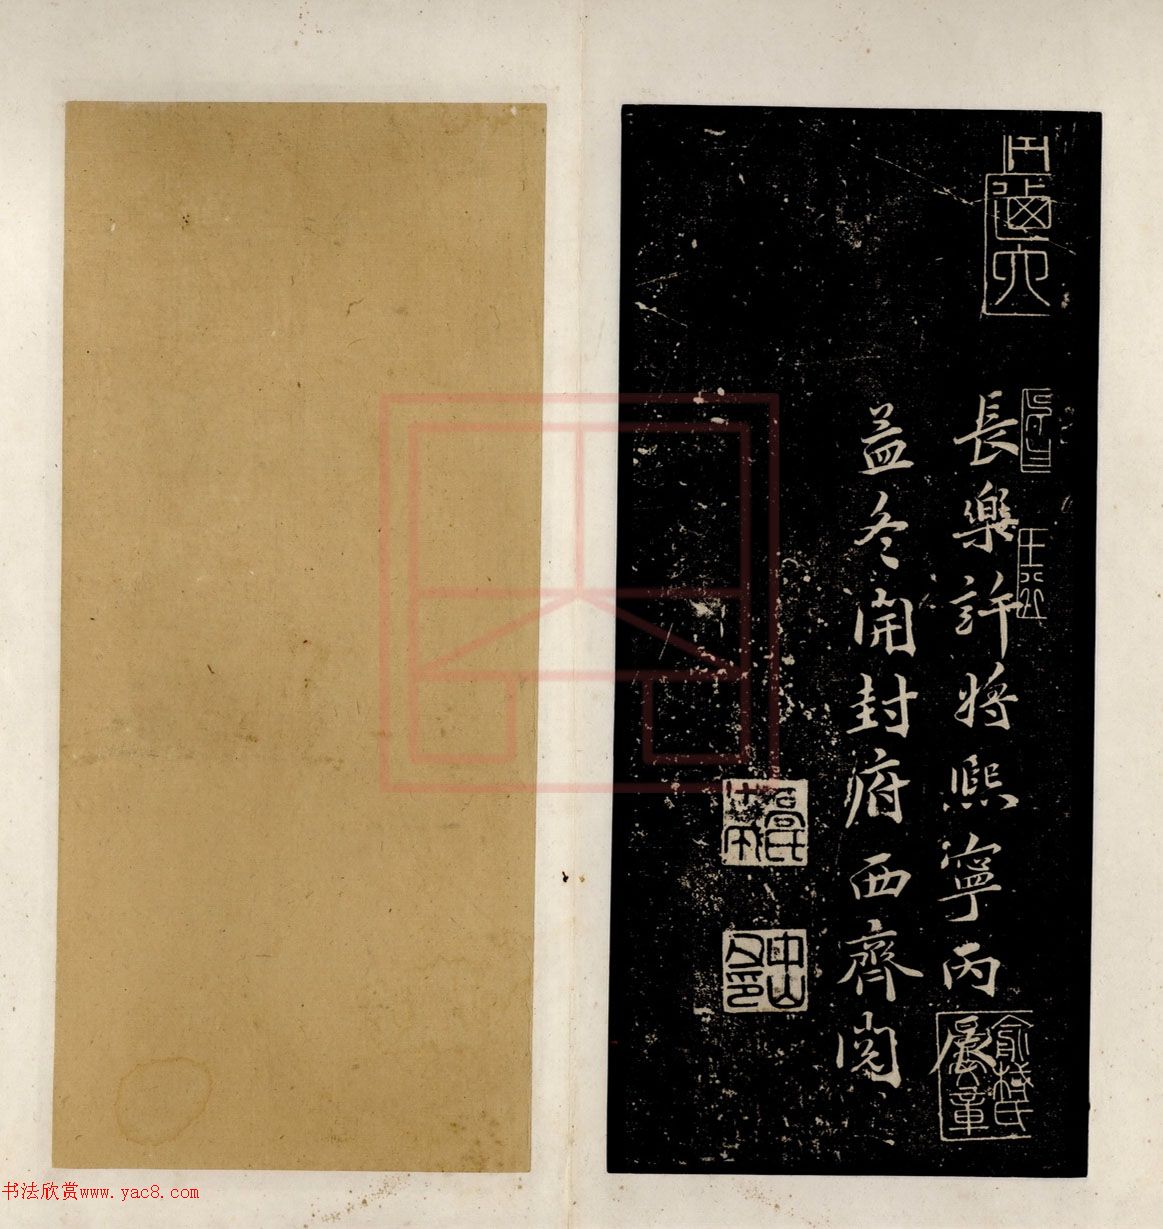 長樂許將熙寧丙辰
益冬開封府西齊閱
中山
书法欣赏www.yac8.com